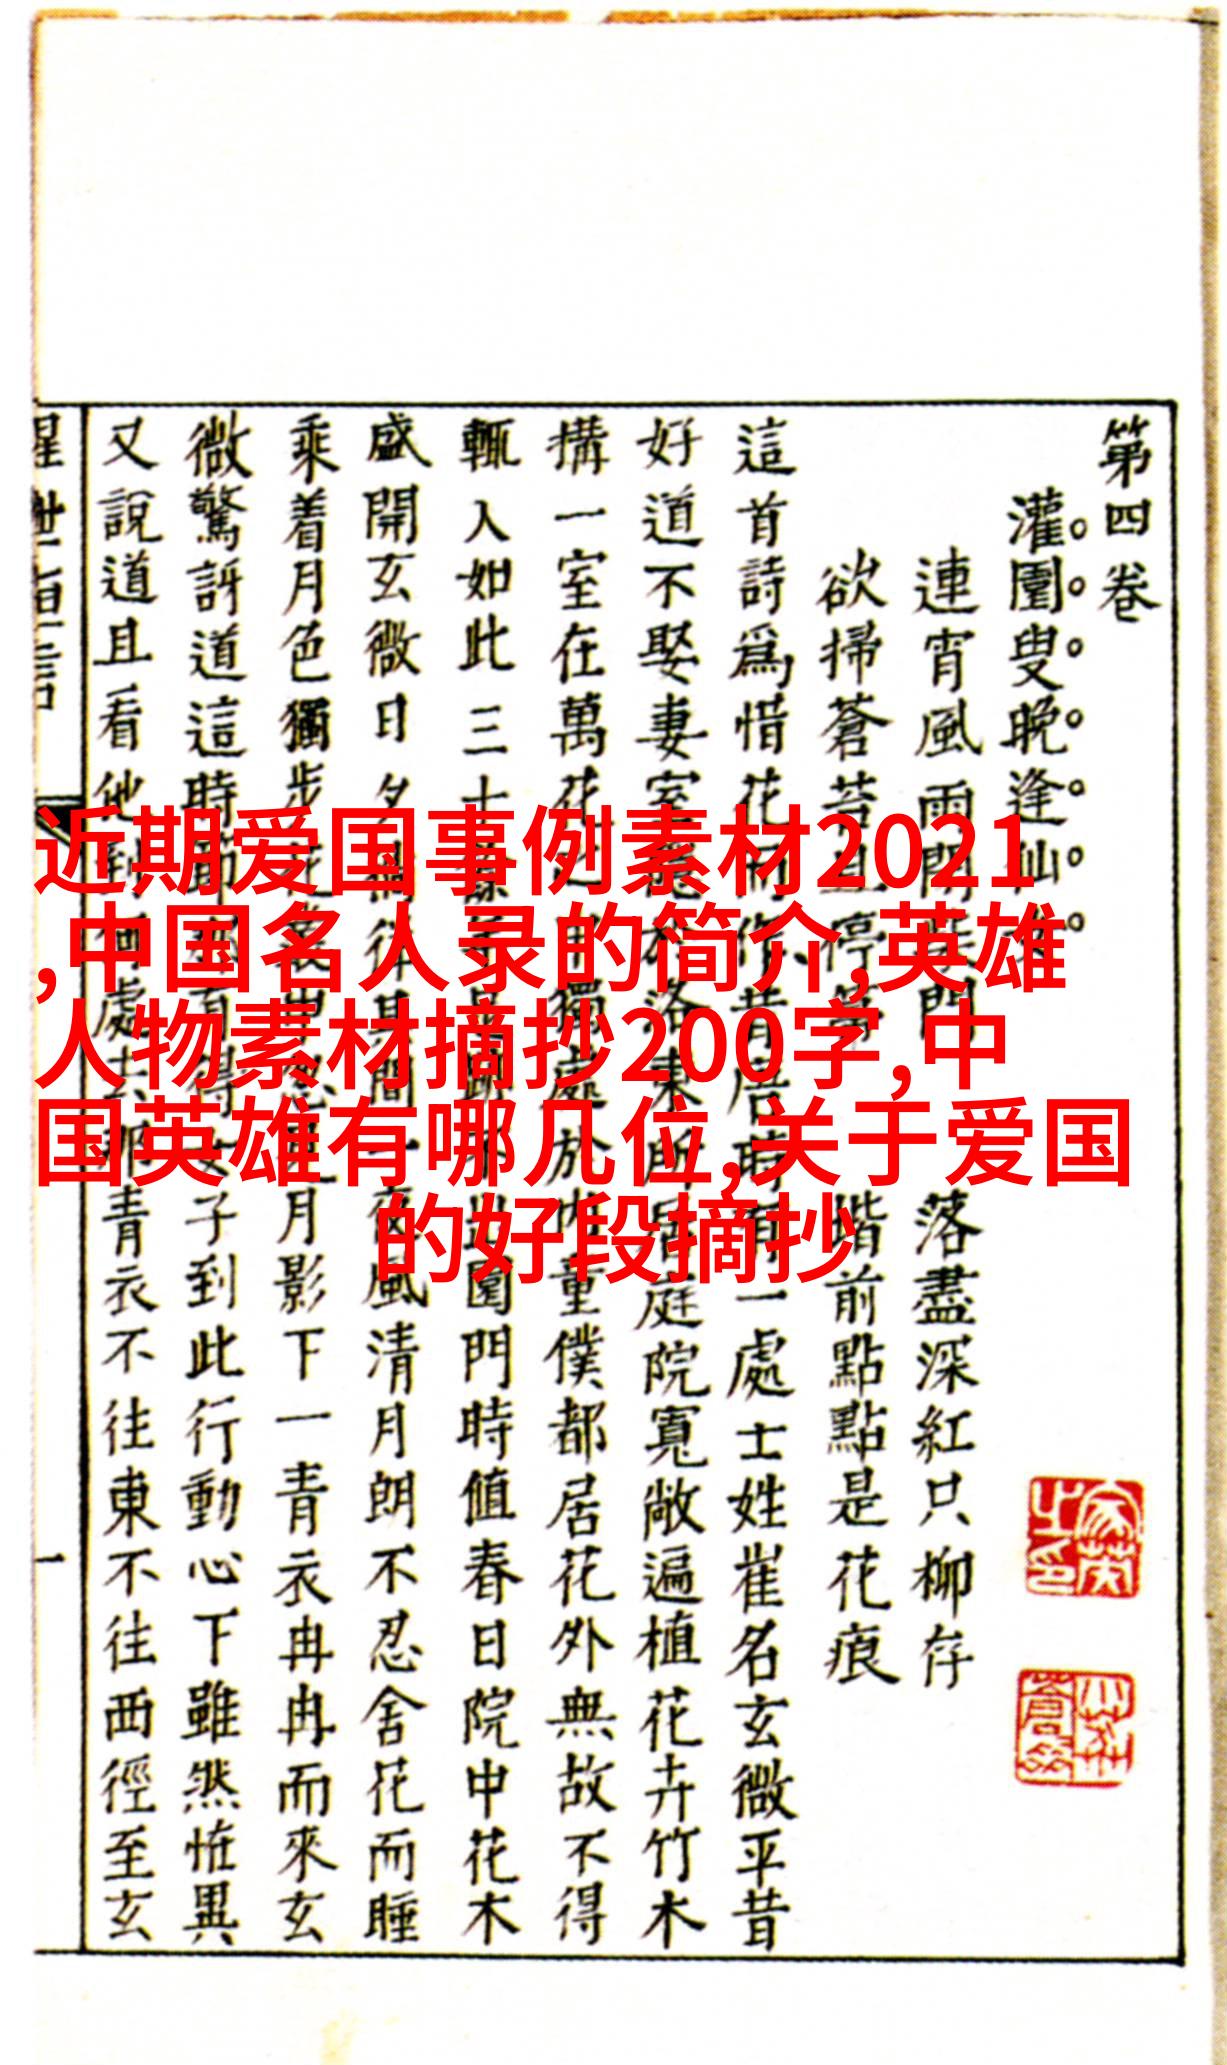 第四卷
灌園叟晚逢仙女
連宵風雨閉柴門 落盡深紅只柳存
欲掃蒼苔且停帚 階前點點是花痕
這首詩爲惜花而作昔唐時有一處士姓崔名玄微平昔
好道不娶妻室隱於洛東所居庭院寬敞遍植花卉竹木
搆一室在萬花之中獨處於內童僕都居花外無故不得
輒入如此三十餘年足跡不出園門時值春日院中花木
盛開玄微日夕徉其間一夜風清月朗不忍舍花而睡
乘着月色獨步花叢中忽見月影下一青衣冉冉而來玄
微驚訝道這時節得女子到此行動心下雖然恠異
又說道且看他到何處去那青衣不往東不往西徑至玄
一
近期爱国事例素材2021
,中国名人录的简介,英雄
人物素材摘抄200字,中
国英雄有哪几位,关于爱国
的好段摘抄